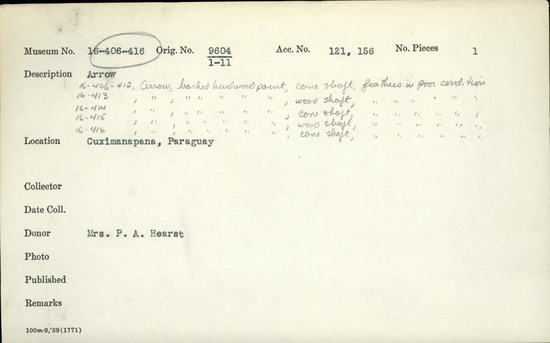 Museum No. 16-406-416 Orig. No. 9604 Acc. No. 121, 156 No. Pieces 1
1-11
Description Arrow
16-406-412, Arrow, barbed hardwood point, cane shaft, feathers in poor condition
16-413 , " , " " " " , wood shaft, " " " "
16-414 , " , " " " " , cane shaft, " " " "
16-415 , " , " " " " , wood shaft, " " " "
16-416 , " , " " " " , cane shaft, " " " "
Location Cuximanapana, Paraguay
Collector
Date Coll.
Donor Mrs. P. A. Hearst
Photo
Published
Remarks
100m-9,'39(1771)